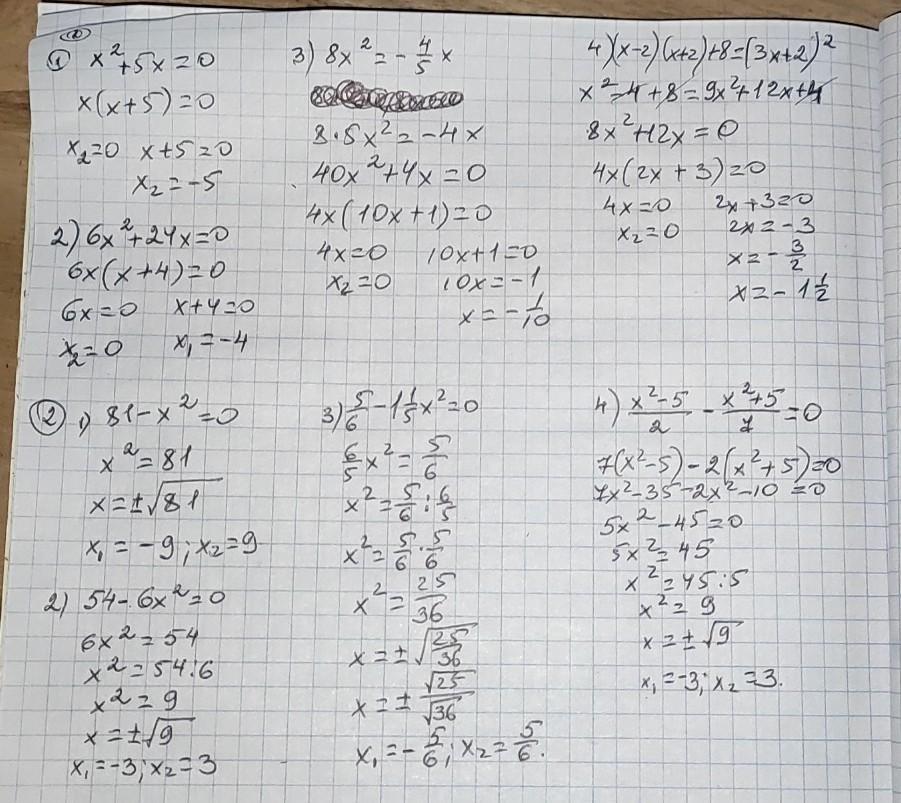 ① x²+5x=0
x(x+5)=0
x₂=0 x+5=0
x₂=-5
2) 6x²+24x=0
6x(x+4)=0
6x=0 x+4=0
x₂=0 x₁=-4
3) 8x²=-4/5x
8·5x²=-4x
40x²+4x=0
4x(10x+1)=0
4x=0 10x+1=0
x₂=0 10x=-1
x=-1/10
4)(x-2)(x+2)+8=(3x+2)²
x²-4+8=9x²+12x+4
8x²+12x=0
4x(2x+3)=0
4x=0 2x+3=0
x₂=0 2x=-3
x=-3/2
x=-1 1/2
② 1) 81-x²=0
x²=81
x=±√81
x₁=-9; x₂=9
2) 54-6x²=0
6x²=54
x²=54:6
x²=9
x=±√9
x₁=-3; x₂=3
3) 5/6-1 1/5x²=0
6/5x²=5/6
x²=5/6:6/5
x²=5/6·5/6
x²=25/36
x=±√25/36
x=±√25/√36
x₁=-5/6; x₂=5/6.
4) x²-5/2-x²+5/7=0
7(x²-5)-2(x²+5)=0
7x²-35-2x²-10=0
5x²-45=0
5x²=45
x²=45:5
x²=9
x=±√9
x₁=-3; x₂=3.